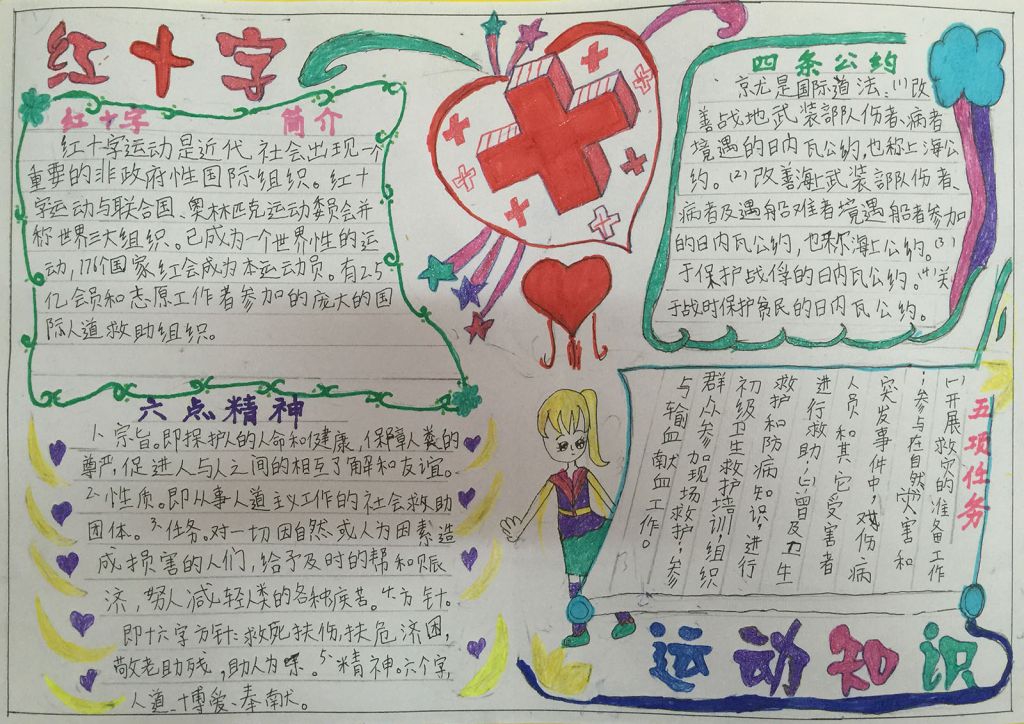 红十字
红十字 简介
红十字运动是近代社会出现一个
重要的非政府性国际组织。红十
字运动与联合国、奥林匹克运动委员会并
称世界三大组织。已成为一个世界性的运
动,176个国家红会成为本运动员。有2.5
亿会员和志原工作者参加的庞大的国
际人道救助组织。
六点精神
1、宗旨。即保护人的人命和健康,保障人类的
尊严,促进人与人之间的相互了解和友谊。
2、性质。即从事人道主义工作的社会救助
团体。3、任务。对一切因自然或人为因素造
成损害的人们,给予及时的帮和赈
济,努人减轻人类的各种疾苦。4、方针。
即十六字方针:救死扶伤,扶危济困,
敬老助残,助人为乐。5、精神。六个字,
人道、博爱、奉献。
四条公约
京尤是国际道法:(1)改
善战地武装部队伤者、病者
境遇的日内瓦公约,也称上海公
约。(2)改善海上武装部队伤者、
病者及遇船难者境遇船者参加
的日内瓦公约,也称海上公约。(3)
于保护战俘的日内瓦公约。(4)关
于战时保护贫民的日内瓦公约。
五项任务
(1)开展救灾的准备工作
;参与在自然灾害和
突发事件中,对伤病
人员和其它受害者
进行救助;(2)普及卫生
救护和防病知识;进行
初级卫生救护培训,组织
群众参加现场救护;参
与输血献血工作。
运动知识